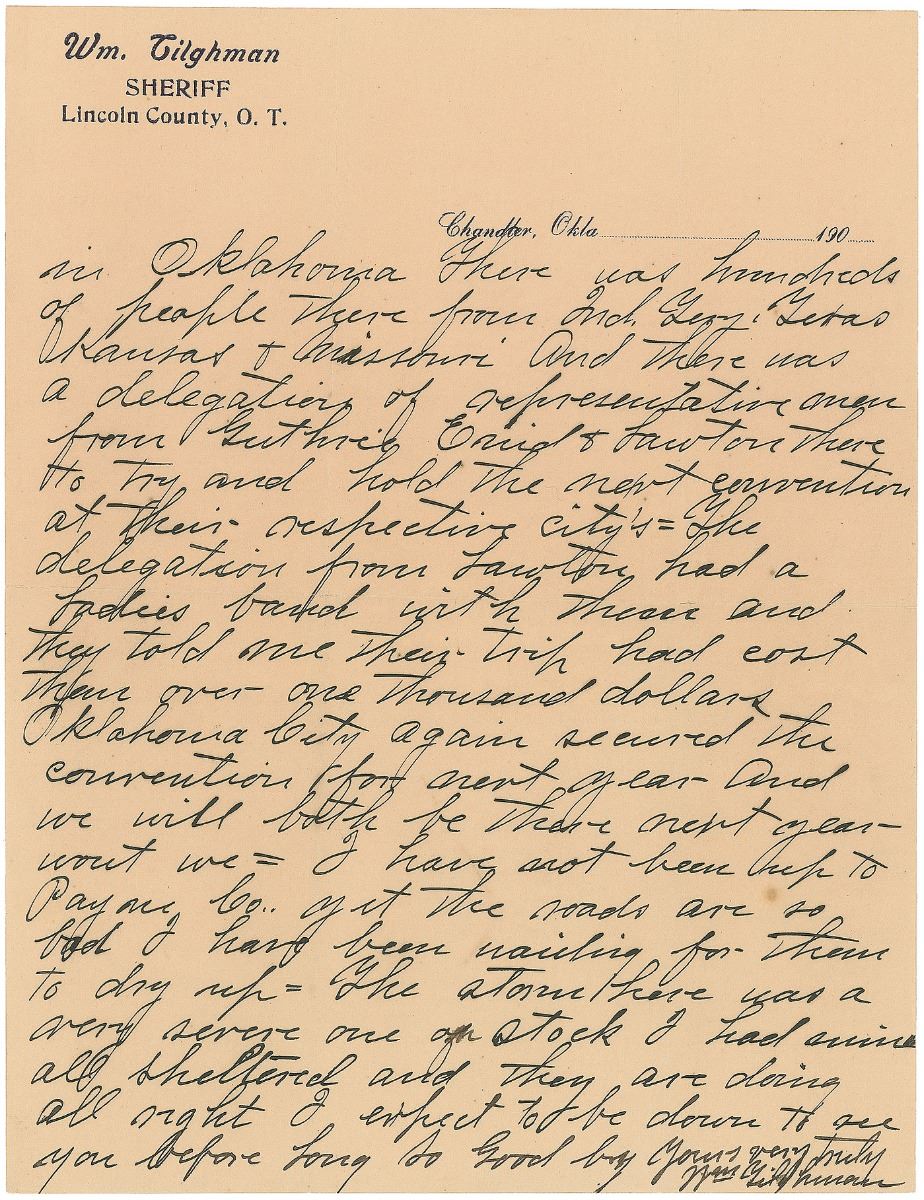 Wm. Tilghman
SHERIFF
Lincoln County, O. T.
Chandler, Okla 190
in Oklahoma There was hundreds
of people there from Ind. Tery. Texas
Kansas & Missouri And there was
a delegation of representative men
from Guthrie Enid & Lawton there
to try and hold the next convention
at their respective city's = The
delegation from Lawton had a
ladies band with them and
they told me their trip had cost
them over one thousand dollars
Oklahoma City again secured the
convention for next year And
we will both be there next year
wont we = I have not been up to
Payne Co.. yet the roads are so
bad I have been waiting for them
to dry up = The storm here was a
very severe one on stock I had mine
all sheltered and they are doing
all right I expect to be down to see
you before long so Good by Yours very truly
Wm Tilghman